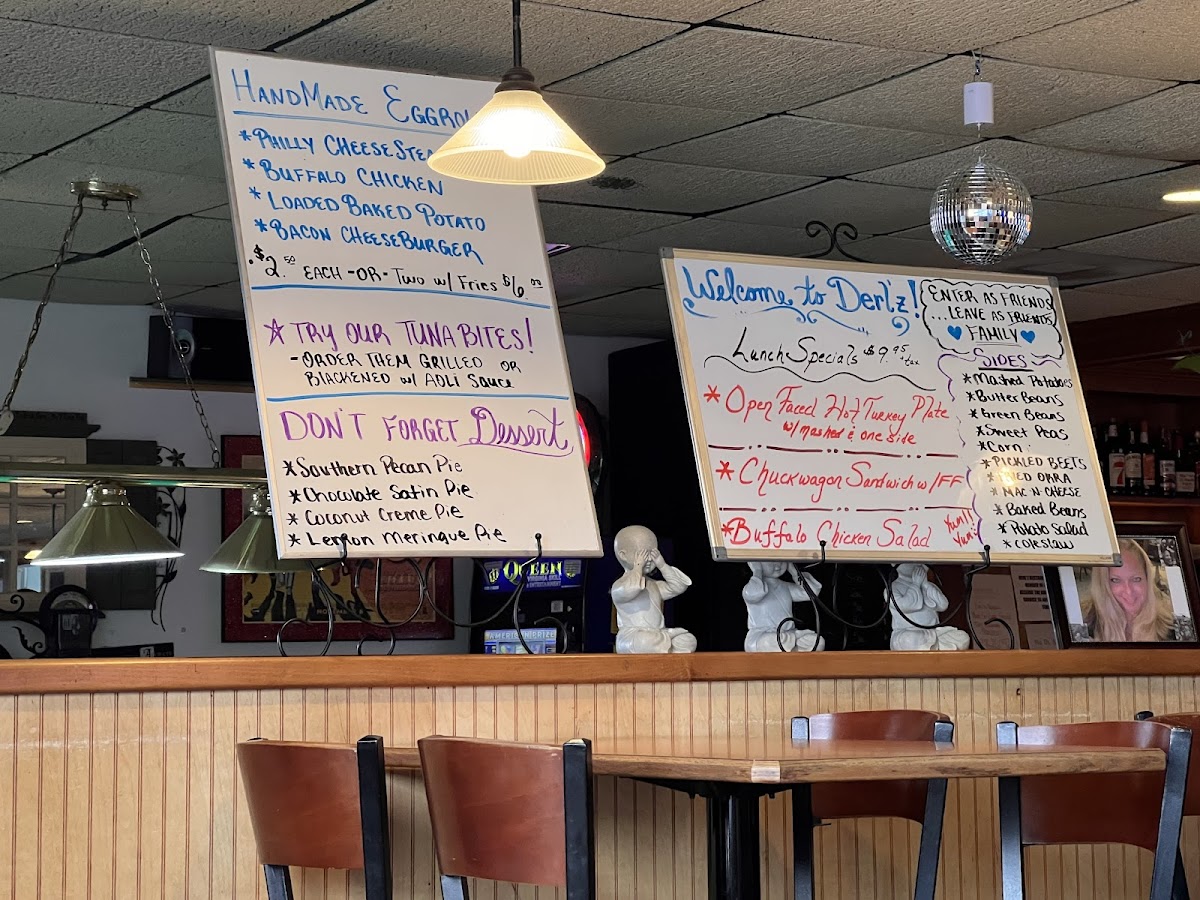 HANDMADE
*PHILLY CHEESE
*BUFFALO CHICKEN
*LOADED BAKED POTATO
*BACON CHEESEBURGER
$2.50 EACH -OR- TWO w/ FRIES $6.00
☆ TRY OUR TUNA BITES!
-ORDER THEM GRILLED OR
BLACKENED w/ AOLI SAUCE
DON'T FORGET Dessert
*Southern Pecan Pie
*Chocolate Satin Pie
*Coconut Creme Pie
*Lemon Meringue Pie
Welcome to Derl'z!
Lunch Specials $9.95 +tax
*Open Faced Hot Turkey Plate
w/ mashed & one side
*Chuckwagon Sandwich w/FF
*Buffalo Chicken Salad
Yum!!
Yum!
ENTER AS FRIENDS
...LEAVE AS FRIENDS
FAMILY
SIDES
*Mashed Potatoes
*Butter Beans
*Green Beans
*Sweet Peas
*Corn
*PICKLED BEETS
*FRIED OKRA
*MAC N CHEESE
*Baked Beans
*Potato Salad
*COLESLAW
QUEEN
VIRGINIA SKILL